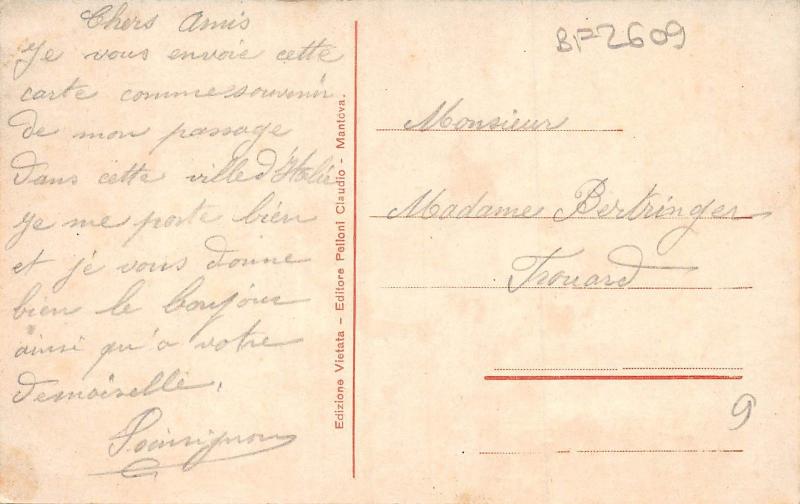 Chers Amis
Je vous envoie cette
carte comme souvenir
de mon passage
dans cette ville d'Italie
je me porte bien
et je vous donne
bien le bonjour
ainsi qu'a votre
demoiselle.
Edizione Vietata - Editore Pelloni Claudio - Mantova.
BF2609
Monsieur
Madame Bertringer
Trouard
9